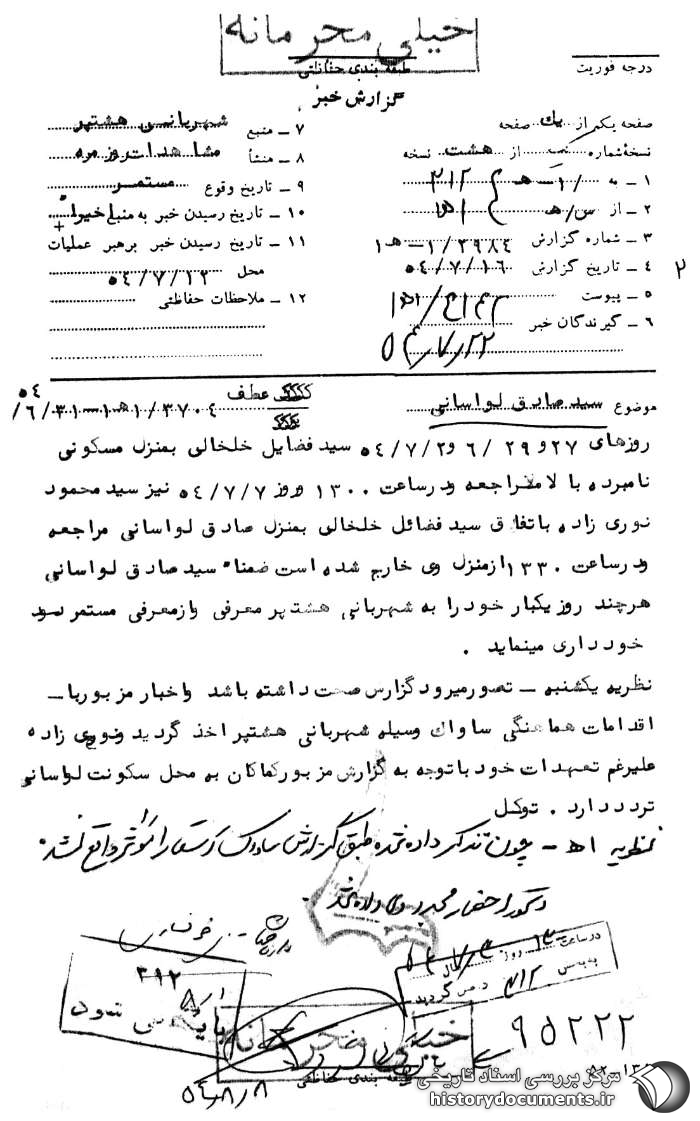 خیلی محرمانه
طبقه بندی حفاظتی
درجه فوریت
گزارش خبر
صفحه یکم از یك صفحه
نسخهٔ شماره از هشت نسخه
۱ ـ به ۱۰ ـ هـ ۳۱۲
۲ ـ از س/هـ ۱ هـ
۳ ـ شماره گزارش ۱/۲۹۸٤ ـ هـ ۱
٤ ـ تاریخ گزارش ٥٤/۷/۱۶
۵ ـ پیوست
۶ ـ گیرندگان خبر
۷ ـ منبع شهربانی هشتپر
۸ ـ منشأ مشاهدات روزمره
۹ ـ تاریخ وقوع مستمر
۱۰ ـ تاریخ رسیدن خبر به منبع اخیرا"
۱۱ ـ تاریخ رسیدن خبر برهبر عملیات
محل ٥٤/۷/۱۲
۱۲ ـ ملاحظات حفاظتی
۲
موضوع سید صادق لواسانی
عطف ۱/۳۷۰٤ هـ ۱ ـ ۳۱/۶/٥٤
روزهای ۲۷ و ۲۹ /۶ و ٥٤/۷/۲ سید فضایل خلخالی بمنزل مسکونی
نامبرده بالا مراجعه و در ساعت ۱۳۰۰ روز ٥٤/۷/۷ نیز سید محمود
نوری زاده باتفاق سید فضائل خلخالی بمنزل صادق لواسانی مراجعه
و در ساعت ۱۳۳۰ ازمنزل وی خارج شده است ضمنا" سید صادق لواسانی
هرچند روز یکبار خود را به شهربانی هشتپر معرفی و از معرفی مستمر خود
خودداری مینماید .
نظریه یکشنبه ـ تصور میرود گزارش صحت داشته باشد و اخبار مزبور با ـ
اقدامات هماهنگی ساواك وسیله شهربانی هشتپر اخذ گردید و نوری زاده
علیرغم تعهدات خود با توجه به گزارش مزبور کماکان به محل سکونت لواسانی
تردد دارد . توکل
نظریه ۱ هـ ـ چون تذکر داده شده طبق گزارش ساواک مؤثر واقع نشد.
دستور احضار مجدد وی داده شد.
در ساعت روز
۳۹۲
بایگانی شود
۹۵۲۲۲
خیلی محرمانه
طبقه بندی حفاظتی
٥٤/۸/۸
مرکز بررسی اسناد تاریخی
historydocuments.ir